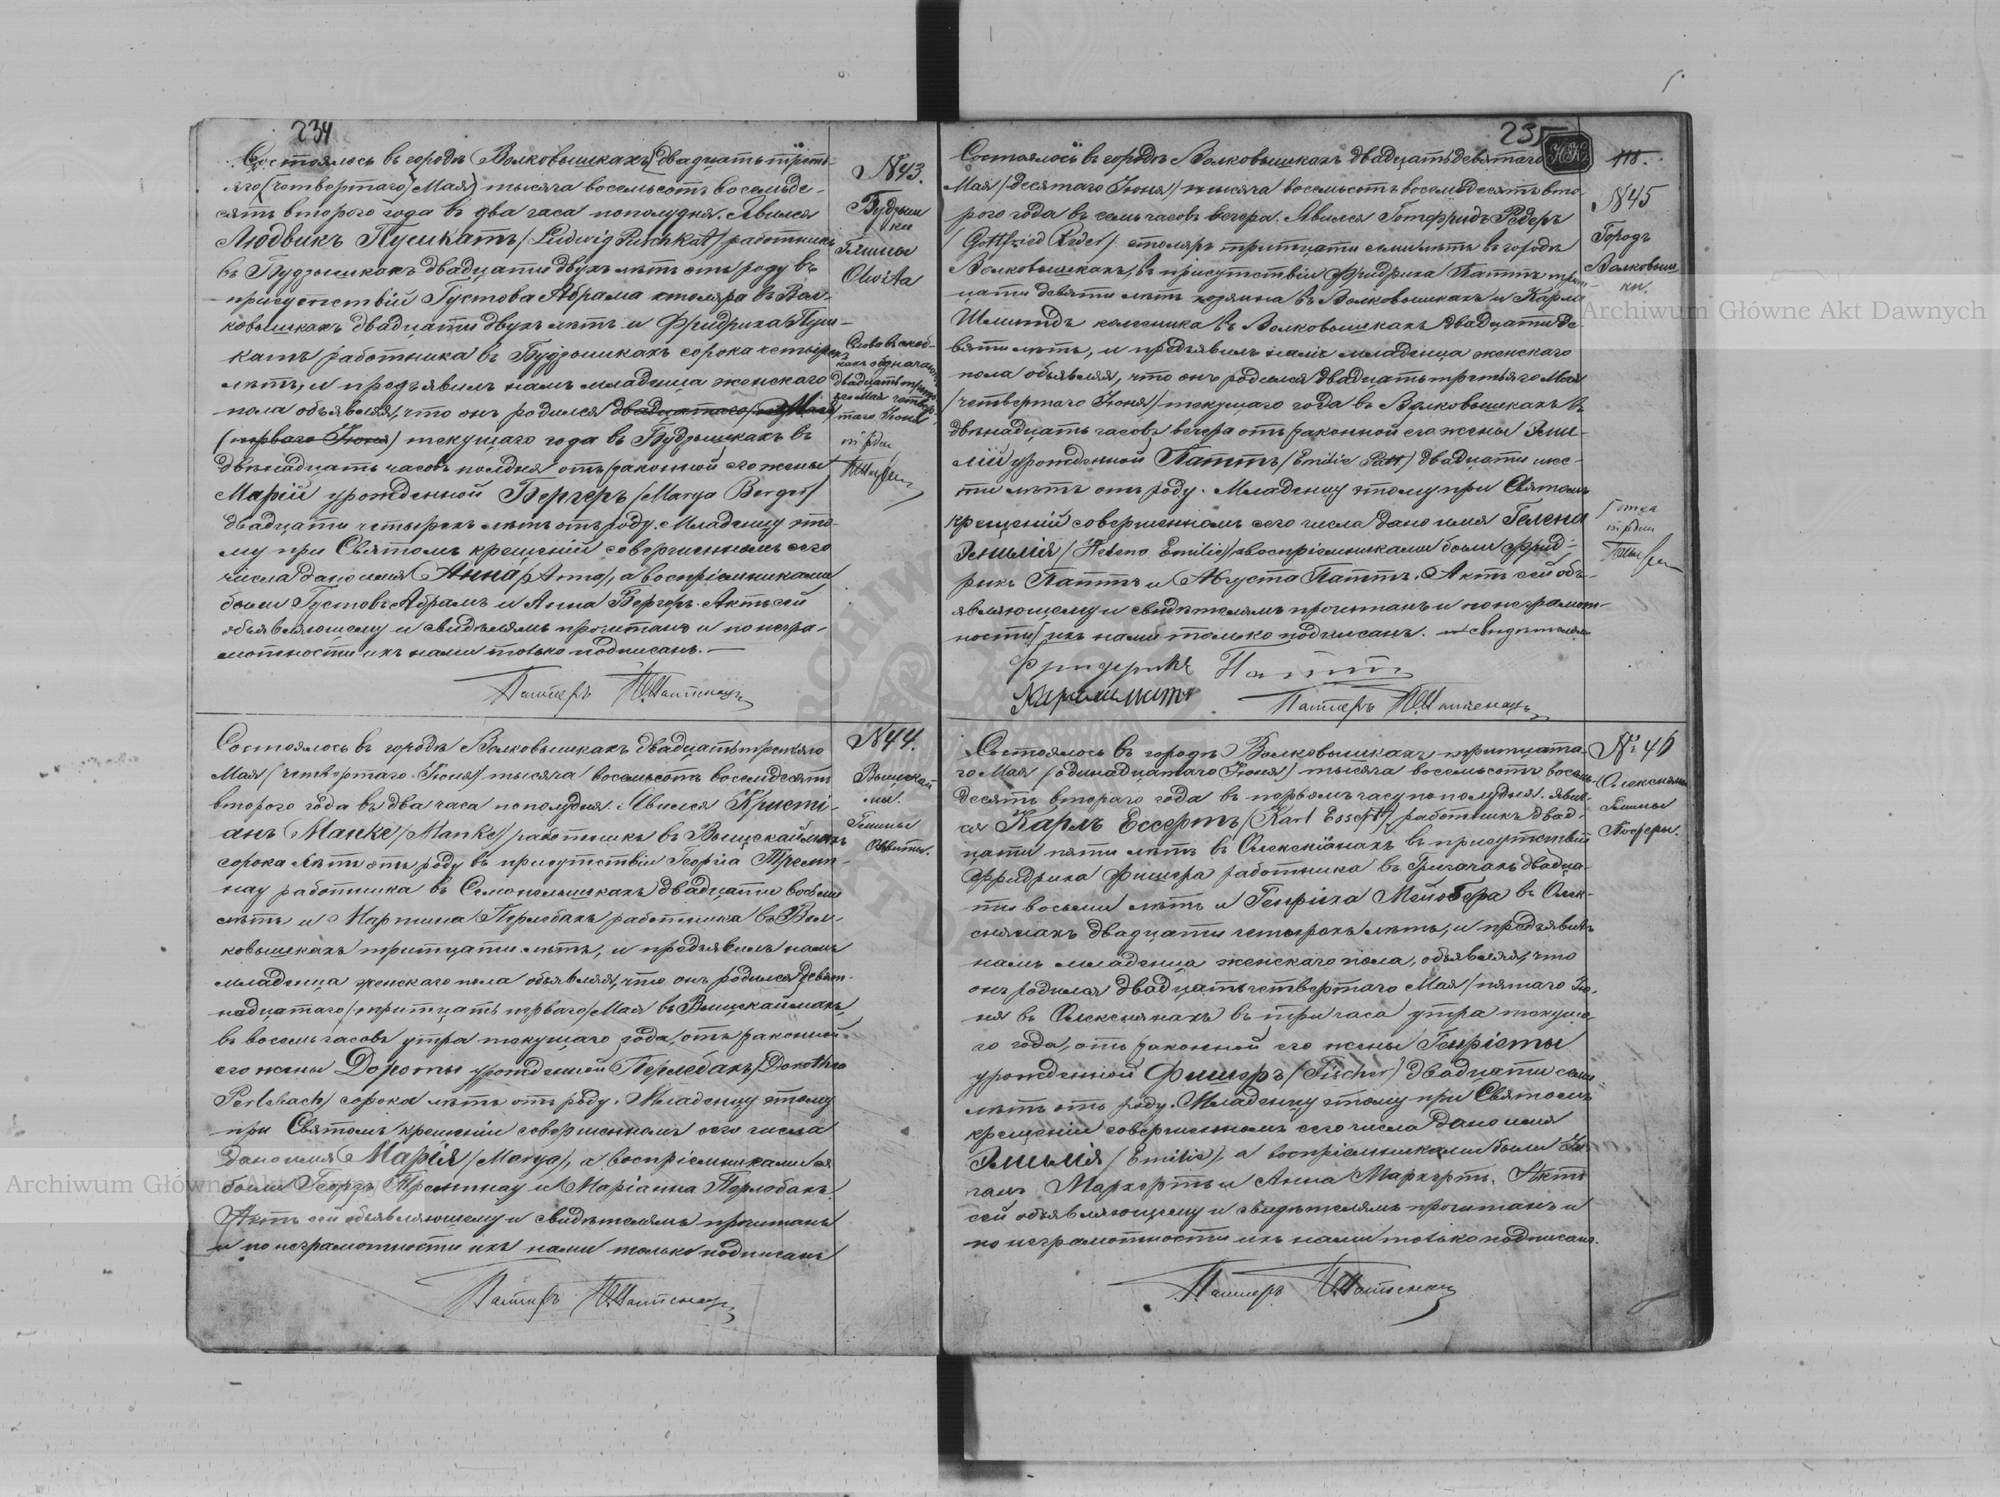 234
Состоялось въ городѣ Волковышкахъ двадцать треть-
яго (четвертаго) Мая) тысяча восемьсотъ восемьде-
сятъ второго года въ два часа пополудня. Явился
Людвикъ Пушкатъ /Ludwig Puschkat/ работникъ
въ Будрышкахъ двадцати двухъ лѣтъ отъ роду въ
присутствій Густова Абрама столяра въ Вол-
ковышкахъ двадцати двухъ лѣтъ и Фридриха Пуш-
катъ работника въ Будрышкахъ сорока четырехъ
лѣтъ, и предъявилъ намъ младенца женского
пола объявляя, что онъ родился двадцатаго Мая
(перваго Іюня) текущаго года въ Будрышкахъ въ
двѣнадцать часовъ полдня отъ законной его жены
Марій урожденной Бергеръ /Marya Berger/
двадцати четырехъ лѣтъ отъ роду. Младенцу это-
му при Святомъ крещеній совершенномъ сего
числа дано имя Анна /Anna/, а воспріемниками
были Густовъ Абрамъ и Анна Бергеръ. Актъ сей
объявляющему и свидѣтелямъ прочитанъ и по негра-
мотности ихъ нами только подписанъ. —
Пасторъ
N43.
Будрыш
ки
Гмины
Olwita
двадцать треть
его Мая четвер
таго Іюня
Состоялось въ городѣ Волковышкахъ двадцать третьяго
Мая /четвертаго Іюня/ тысяча восемьсотъ восемдесятъ
второго года въ два часа пополудня. Явился Кристі-
анъ Манке /Manke/ работникъ въ Выщскаймахъ
сорока лѣтъ отъ роду въ присутствіи Георга Тремп-
нау работника въ двадцати восьми
лѣтъ и Мартина Перлебахъ работника въ Вол-
ковышкахъ тритцати лѣтъ, и предъявилъ намъ
младенца женскаго пола объявляя, что онъ родился девят-
надцатаго /тритцать перваго/ Мая въ Выщскаймахъ
въ восемь часовъ утра текущаго года, отъ законной
его жены Дороты урожденной Перлебахъ /Dorothea
Perlebach/ сорока лѣтъ отъ роду. Младенцу этому
при Святомъ крещеніи совершенномъ сего числа
дано имя Марія /Marya/, а воспріемниками
были Георгъ Тремпнау и Маріанна Перлебахъ.
Актъ сей объявляющему и свидѣтелямъ прочитанъ
и по неграмотности ихъ нами только подписанъ
Пасторъ
N44.
Гмины
235
Состоялось въ городѣ Волковышкахъ двадцать девятаго
Мая /десятаго Іюня/ тысяча восемьсотъ восемдесятъ вто-
рого года въ семь часовъ вечера. Явился Готфридъ Редеръ
/Gottfried Reder/ столяръ тритцати семи лѣтъ въ городѣ
Волковышкахъ, въ присутствіи Фридриха Паттъ трит-
цати девяти лѣтъ хозяина въ Волковышкахъ и Карла
Шмидтъ колесника въ Волковышкахъ двадцати де-
вяти лѣтъ, и предъявилъ намъ младенца женскаго
пола объявляя, что онъ родился двадцать третьяго Мая
/четвертаго Іюня/ текущаго года въ Волковышкахъ въ
двѣнадцать часовъ вечера отъ законной его жены Эми-
лій урожденной Паттъ /Emilie Patt/ двадцати шес-
ти лѣтъ отъ роду. Младенцу этому при Святомъ
крещеній совершенномъ сего числа дано имя Гелена
Эмилія /Helena Emilie/ а воспріемниками были Фрид-
рихъ Паттъ и Августа Паттъ. Актъ сей объ-
являющему и свидѣтелямъ прочитанъ и по неграмот-
ности ихъ нами только подписанъ. и свидѣтелями
Фридерихъ Паттъ
Карлъ Шмитъ
Пасторъ
118.
N45
Городъ
Волковыш
ки.
Состоялось въ городѣ Волковышкахъ тритцата-
го Мая /одинадцатаго Іюня/ тысяча восемьсотъ восемь-
десятъ второго года въ первомъ часу пополудня. Явил-
ся Карлъ Эссертъ /Karl Essert/ работникъ двад-
цати пяти лѣтъ въ Олекснянахъ въ присутствій
Фридриха Фишера работника въ двадца-
ти восьми лѣтъ и Генриха въ Олек-
снянахъ двадцати четырехъ лѣтъ, и предъявилъ
намъ младенца женскаго пола, объявляя, что
онъ родился двадцать четвертаго Мая /пятаго Ію-
ня въ Олекснянахъ въ три часа утра текуща-
го года, отъ законной его жены Генріеты
урожденной Фишеръ /Fischer/ двадцати семи
лѣтъ отъ роду. Младенцу этому при Святомъ
крещеніи совершенномъ сего числа дано имя
Эмилія /Emilie/, а воспріемниками были
Маркгертъ и Анна Маркгертъ. Актъ
сей объявляющему и свидѣтелямъ прочитанъ и
по неграмотности ихъ нами только подписанъ.
Пасторъ
N 46
Гмины
Archiwum Główne Akt Dawnych
Archiwum Główne Akt Dawnych